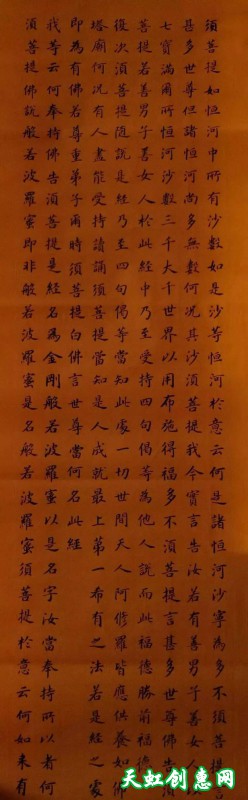 須菩提如恒河中所有沙數如是沙等恒河於意云何是諸恒河沙寧為多不須菩提言
甚多世尊但諸恒河尚多無數何況其沙須菩提我今實言告汝若有善男子善女人
七寶滿爾所恒河沙數三千大千世界以用布施得福多不須菩提言甚多世尊佛告須
菩提若善男子善女人於此經中乃至受持四句偈等為他人說而此福德勝前福德
復次須菩提隨說是經乃至四句偈等當知此處一切世間天人阿修羅皆應供養如佛
塔廟何況有人盡能受持讀誦須菩提當知是人成就最上第一希有之法若是經之處
即為有佛若尊重弟子爾時須菩提白佛言世尊當何名此經
我等云何奉持佛告須菩提是經名為金剛般若波羅蜜以是名字汝當奉持所以者何
須菩提佛說般若波羅蜜即非般若波羅蜜是名般若波羅蜜須菩提於意云何如來有
天虹创惠网